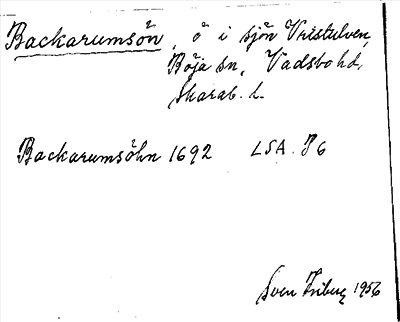 Backarumsön, ö i sjön Vristulven,
Böja sn, Vadsbo hd,
Skarab. l.
Backarumsöhn 1692 LSA. P6
Sven Friberg 1956